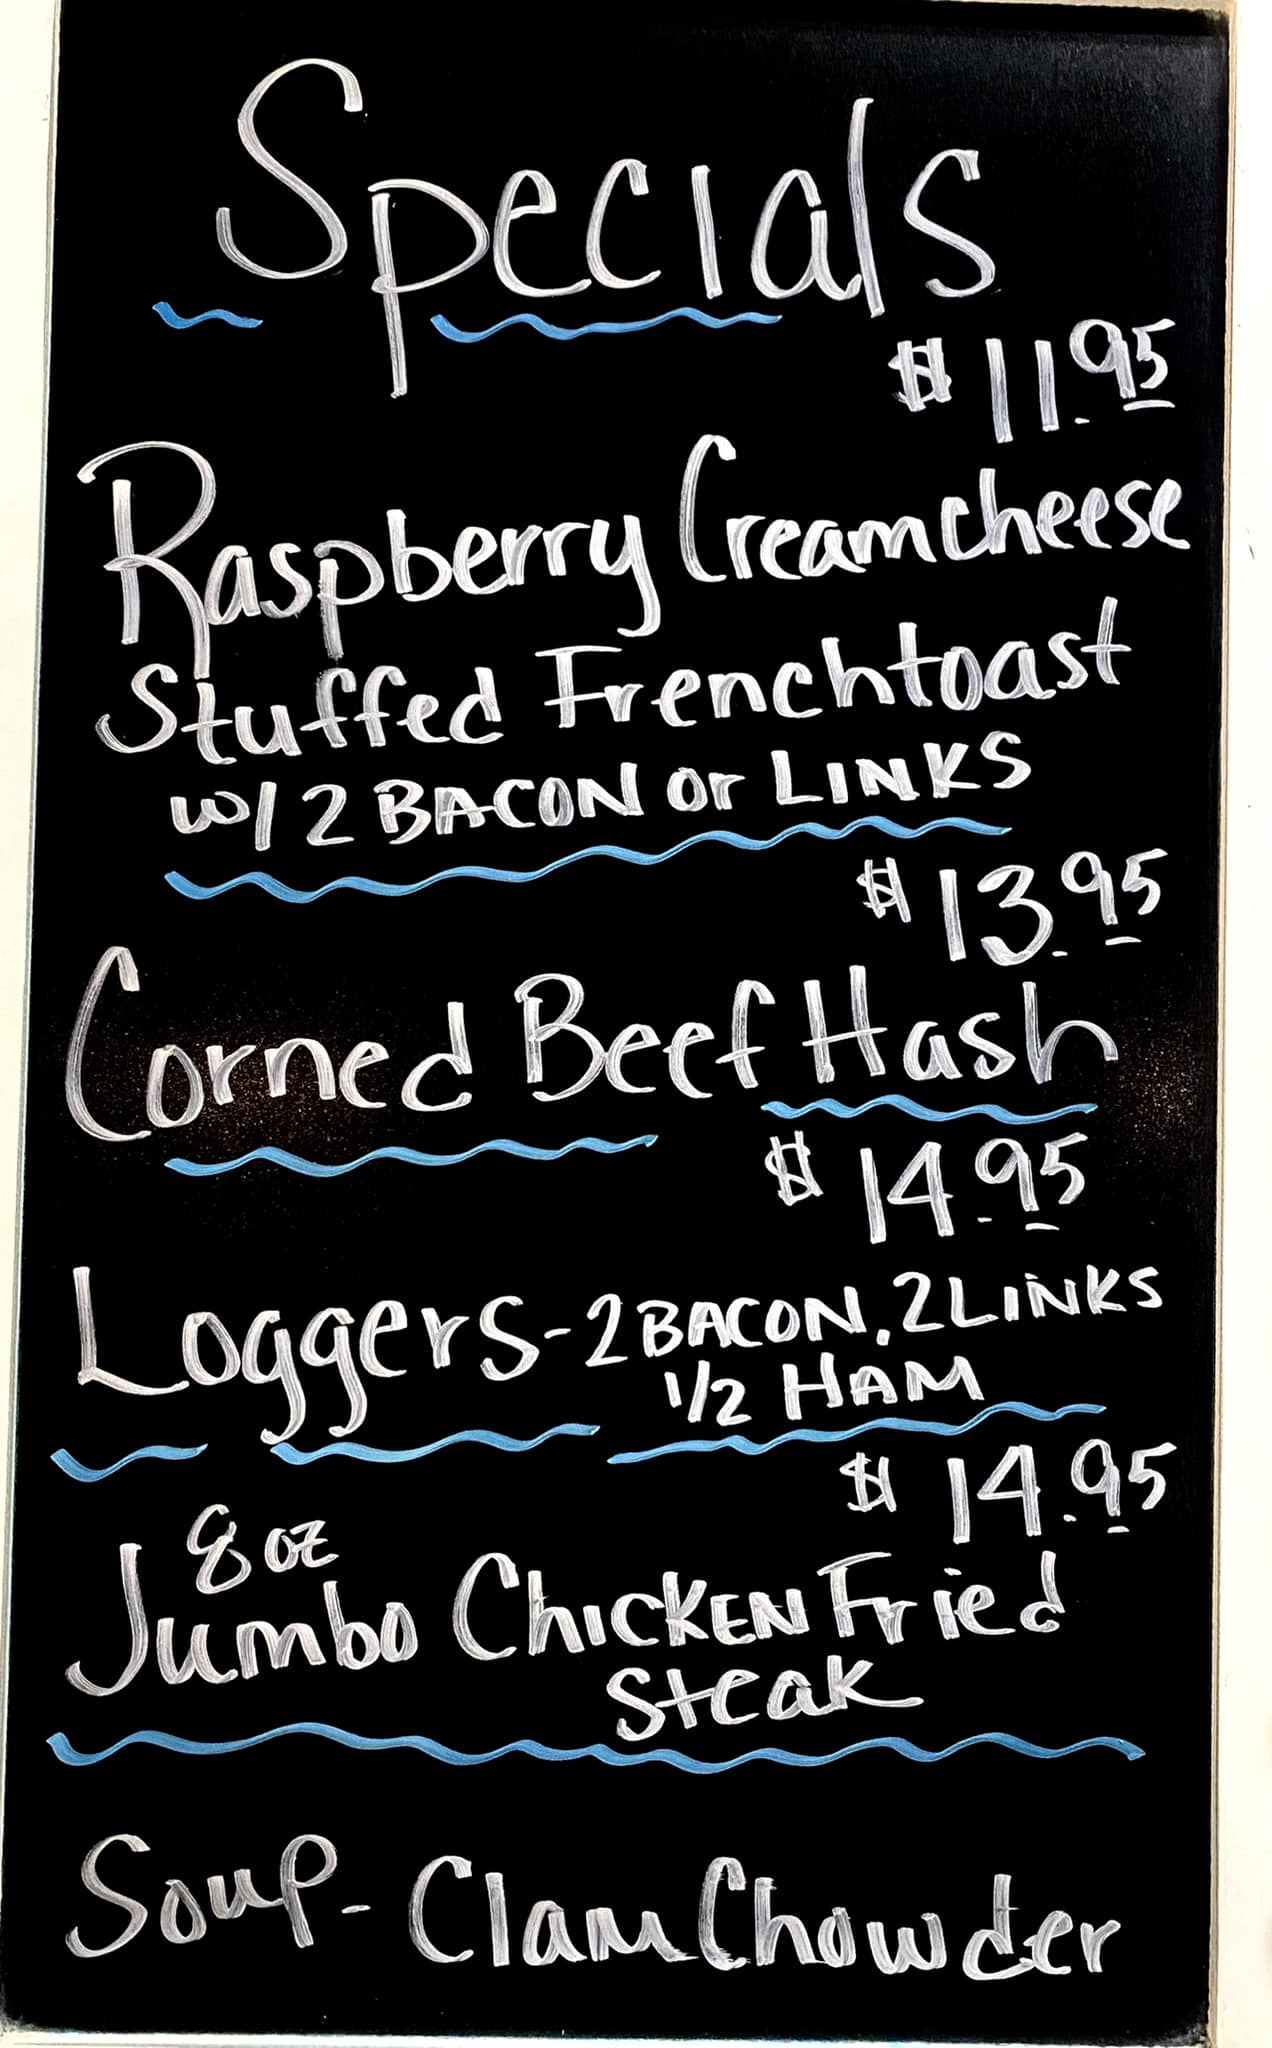 Specials
$11.95
Raspberry Creamcheese
Stuffed Frenchtoast
w/ 2 BACON or LINKS
$13.95
Corned Beef Hash
$14.95
Loggers - 2 BACON, 2 LINKS
1/2 HAM
$14.95
8 oz
Jumbo CHICKEN Fried
Steak
Soup - Clam Chowder